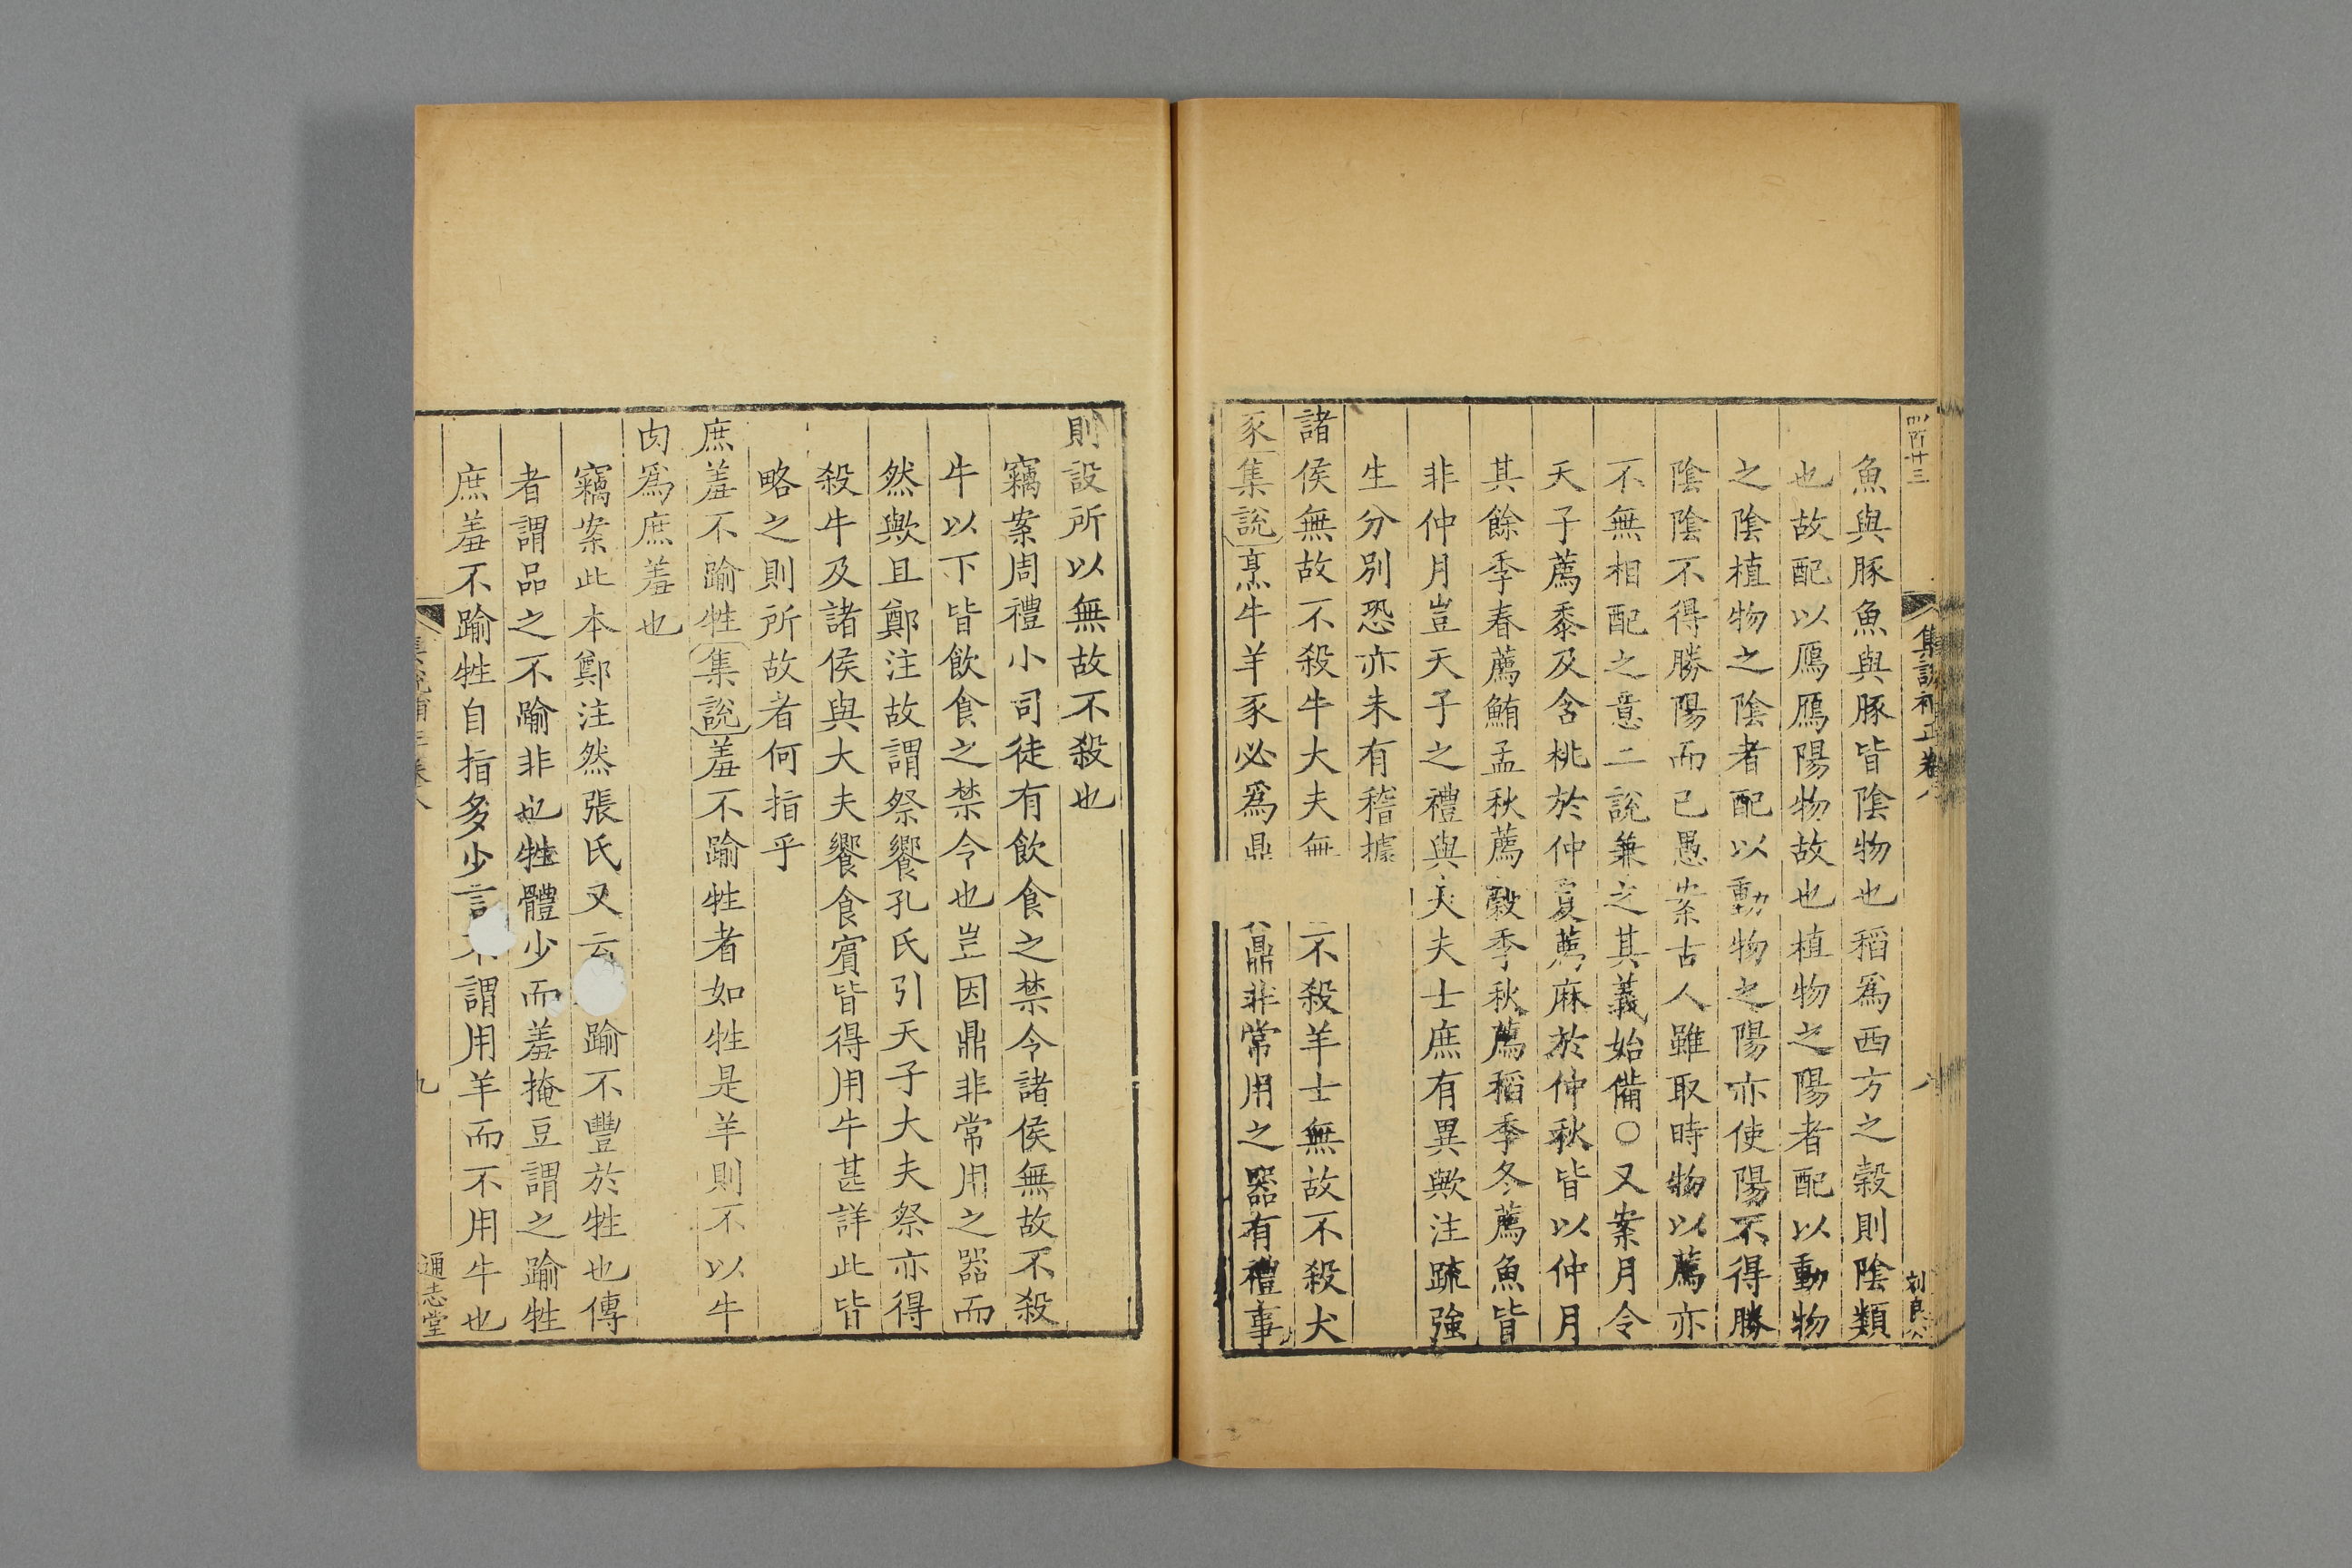 魚與豚魚與豚皆陰物也稻爲西方之穀則陰類
也故配以鴈鴈陽物故也植物之陽者配以動物
之陰植物之陰者配以動物之陽亦使陽不得勝
陰陰不得勝陽而已愚案古人雖取時物以薦亦
不無相配之意二說兼之其義始備○又案月令
天子薦黍及含桃於仲夏薦麻於仲秋皆以仲月
其餘季春薦鮪孟秋薦穀季秋薦稻季冬薦魚皆
非仲月豈天子之禮與大夫士庶有異歟注疏強
生分別恐亦未有稽據
諸侯無故不殺牛大夫無不殺羊士無故不殺犬
豕集說烹牛羊豕必爲鼎鼎非常用之器有禮事
則設所以無故不殺也
竊案周禮小司徒有飲食之禁令諸侯無故不殺
牛以下皆飲食之禁令也豈因鼎非常用之器而
然歟且鄭注故謂祭饗孔氏引天子大夫祭亦得
殺牛及諸侯與大夫饗食賓皆得用牛甚詳此皆
略之則所故者何指乎
庶羞不踰牲集說羞不踰牲者如牲是羊則不以牛
肉爲庶羞也
竊案此本鄭注然張氏又云踰不豐於牲也傳
者謂品之不踰非也牲體少而羞掩豆謂之踰牲
庶羞不踰牲自指多少言謂用羊而不用牛也
集說補正卷八
八
九
通志堂